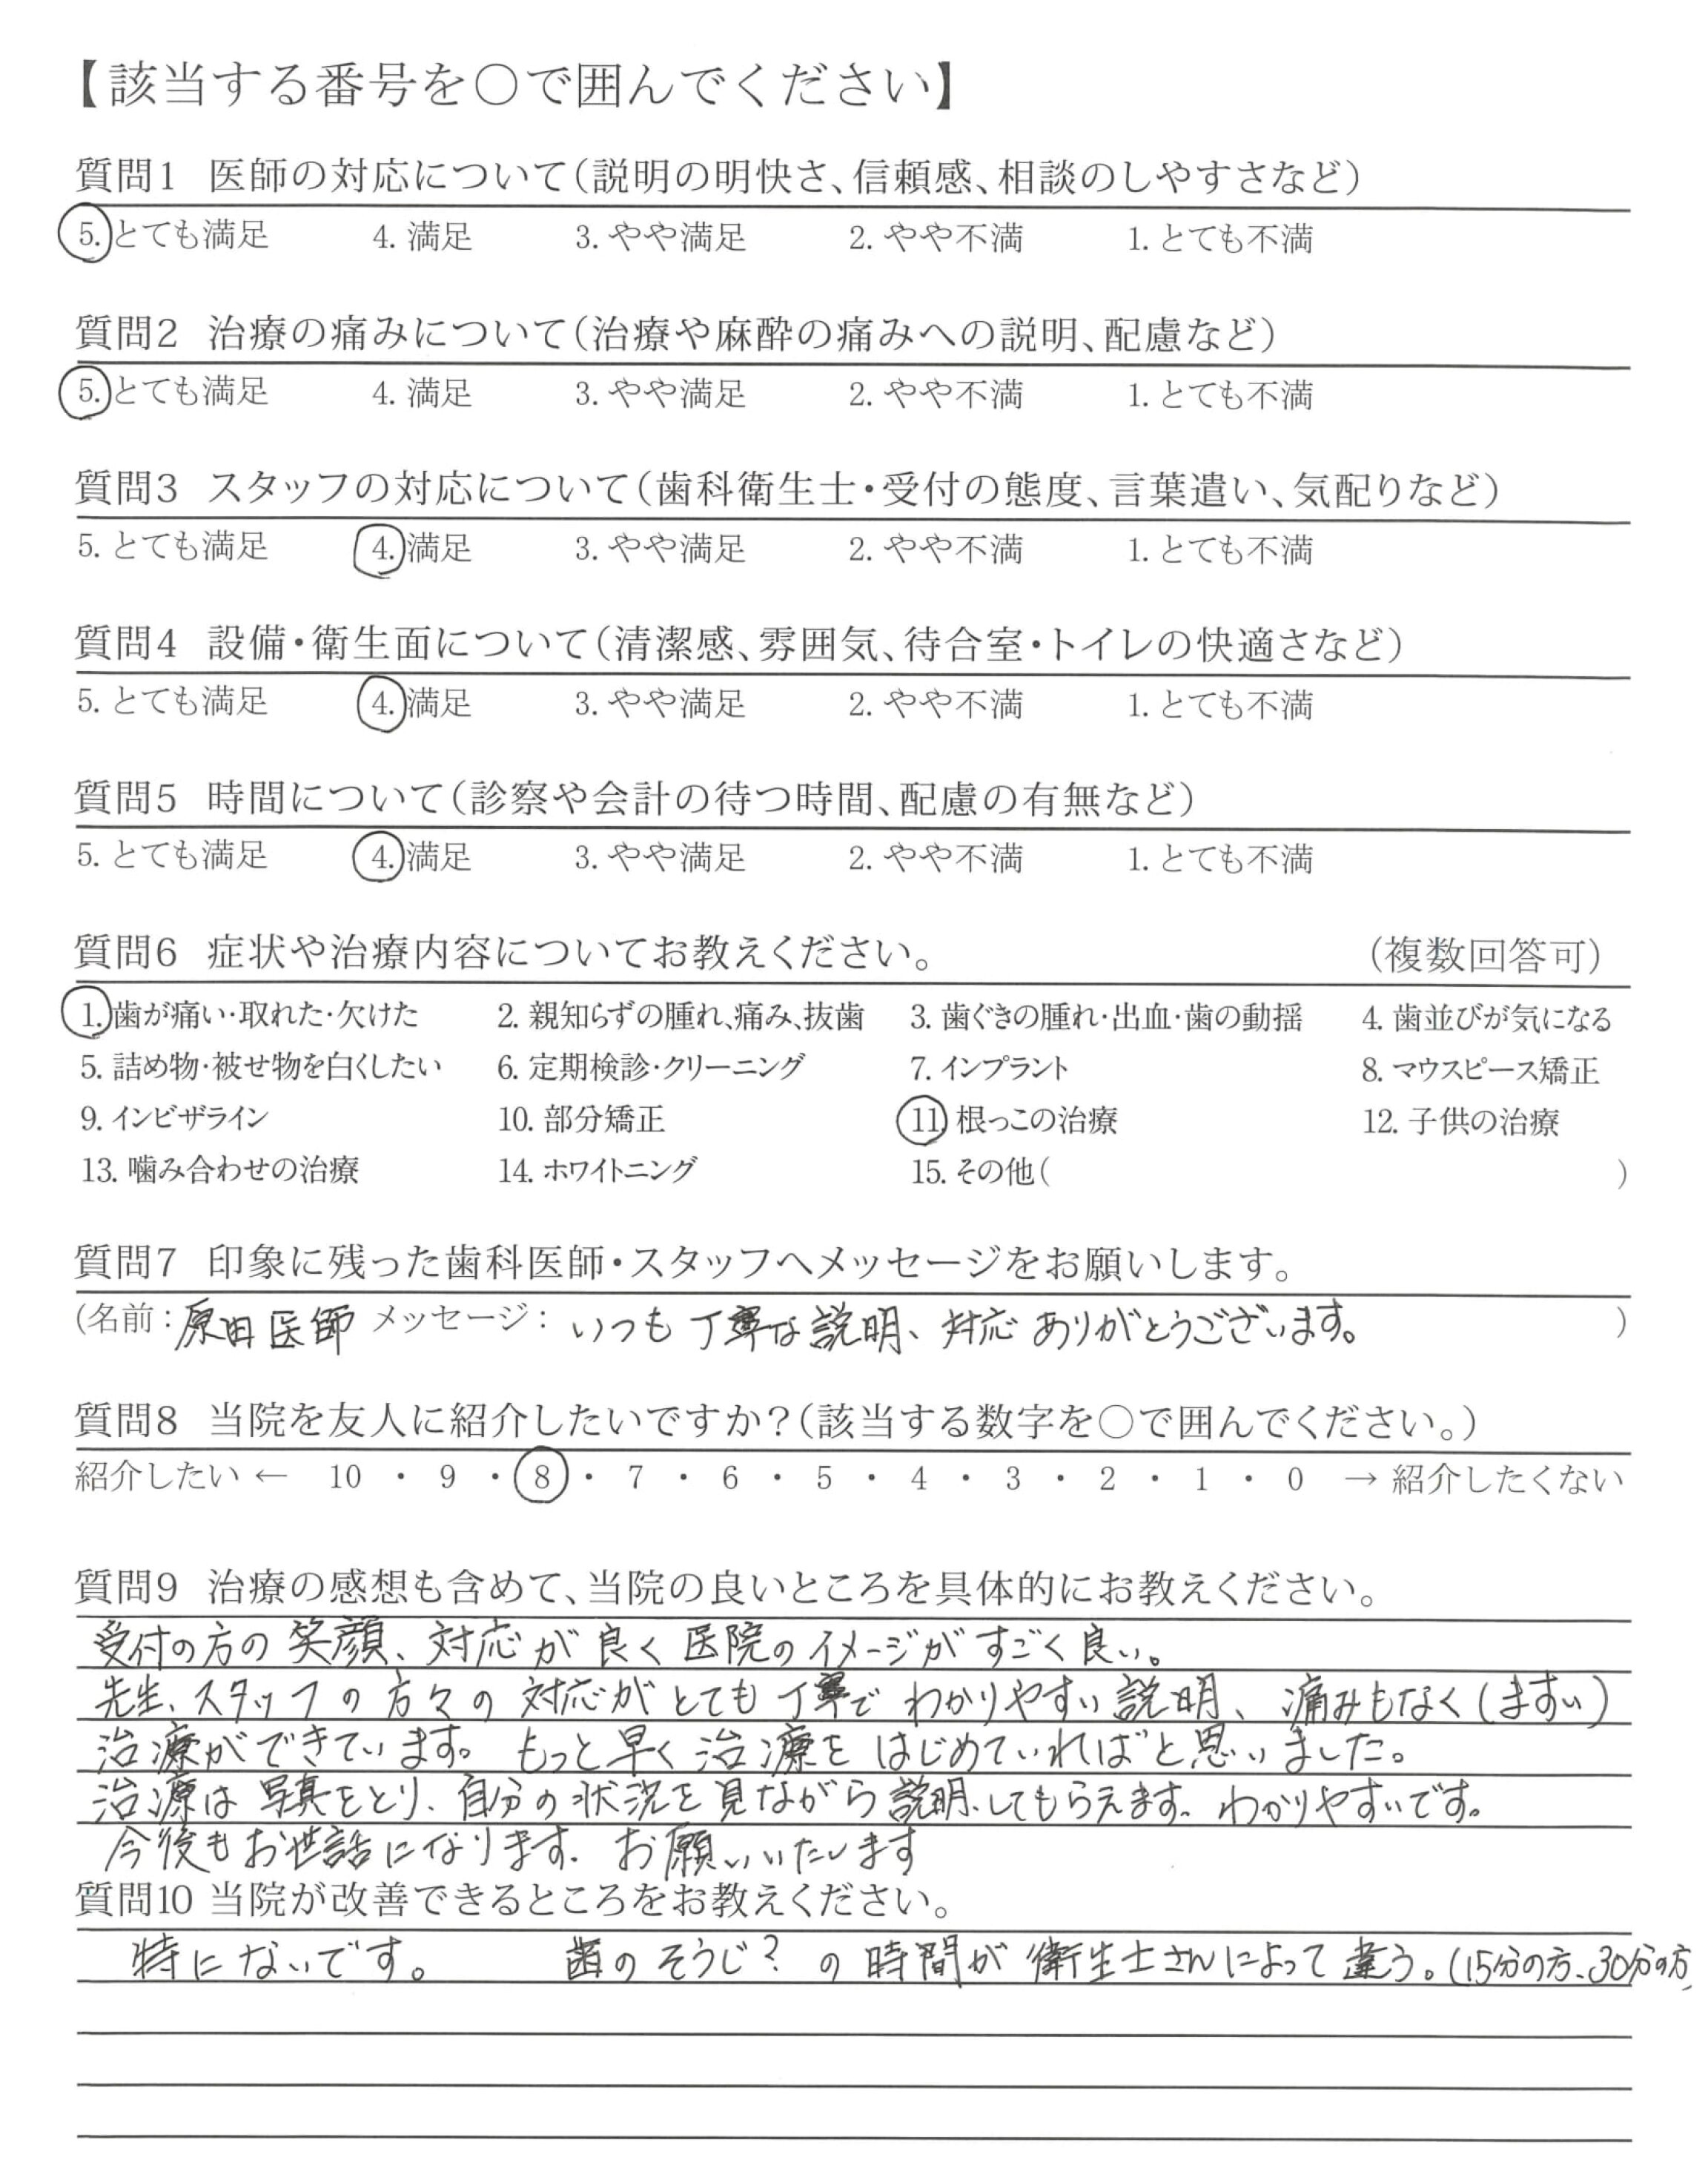 【該当する番号を○で囲んでください】
質問1 医師の対応について(説明の明快さ、信頼感、相談のしやすさなど)
5. とても満足 4. 満足 3. やや満足 2. やや不満 1. とても不満
質問2 治療の痛みについて(治療や麻酔の痛みへの説明、配慮など)
5. とても満足 4. 満足 3. やや満足 2. やや不満 1. とても不満
質問3 スタッフの対応について(歯科衛生士・受付の態度、言葉遣い、気配りなど)
5. とても満足 4. 満足 3. やや満足 2. やや不満 1. とても不満
質問4 設備・衛生面について(清潔感、雰囲気、待合室・トイレの快適さなど)
5. とても満足 4. 満足 3. やや満足 2. やや不満 1. とても不満
質問5 時間について(診察や会計の待つ時間、配慮の有無など)
5. とても満足 4. 満足 3. やや満足 2. やや不満 1. とても不満
質問6 症状や治療内容についてお教えください。 (複数回答可)
1. 歯が痛い・取れた・欠けた 2. 親知らずの腫れ、痛み、抜歯 3. 歯ぐきの腫れ・出血・歯の動揺 4. 歯並びが気になる
5. 詰め物・被せ物を白くしたい 6. 定期検診・クリーニング 7. インプラント 8. マウスピース矯正
9. インビザライン 10. 部分矯正 11. 根っこの治療 12. 子供の治療
13. 噛み合わせの治療 14. ホワイトニング 15. その他( )
質問7 印象に残った歯科医師・スタッフへメッセージをお願いします。
(名前：原田医師 メッセージ：いつも丁寧な説明、対応ありがとうございます。 )
質問8 当院を友人に紹介したいですか？(該当する数字を○で囲んでください。)
紹介したい ← 10 ・ 9 ・ 8 ・ 7 ・ 6 ・ 5 ・ 4 ・ 3 ・ 2 ・ 1 ・ 0 → 紹介したくない
質問9 治療の感想も含めて、当院の良いところを具体的にお教えください。
受付の方の笑顔、対応が良く医院のイメージがすごく良い。
先生、スタッフの方々の対応がとても丁寧でわかりやすい説明、痛みもなく(ますい)
治療ができています。もっと早く治療をはじめていればと思いました。
治療は写真をとり、自分の状況を見ながら説明してもらえます。わかりやすいです。
今後もお世話になります。お願いいたします
質問10 当院が改善できるところをお教えください。
特にないです。 歯のそうじ？の時間が衛生士さんによって違う。(15分の方、30分の方)